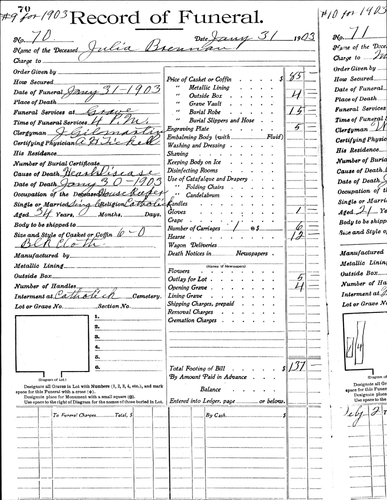 70
#9 for 1903
Record of Funeral.
No. 70 Date Jany 31 1903
Name of the Deceased Julia Brennan
Charge to
Order Given by
How Secured
Date of Funeral Jany 31-1903
Place of Death
Funeral Services at Grave
Time of Funeral Services 4 P.M.
Clergyman J Gilmartin
Certifying Physician
His Residence
Number of Burial Certificate
Cause of Death Heart Disease
Date of Death Jany 30-1903
Occupation of the Deceased Housekeeper
Single or Married Single Religion Catholic
Aged 34 Years, Months, Days
Body to be shipped to
Size and Style of Casket or Coffin 6-0
Blk Cloth
Manufactured by
Metallic Lining
Outside Box
Number of Handles
Interment at Catholick Cemetery.
Lot or Grave No. Section No.
1.
2.
3.
4.
5.
6.
(Diagram of Lot.)
Designate all Graves in Lot with Numbers (1, 2, 3, 4, etc.), and mark
space for this Funeral with a cross
Designate place for Monument with a small square
Use space to the right of Diagram for the names of those buried in Lot.
Price of Casket or Coffin $ 85
" Metallic Lining
" Outside Box 4
" Grave Vault
" Burial Robe 15
" Burial Slippers and Hose
Engraving Plate 5
Embalming Body (with Fluid)
Washing and Dressing
Shaving
Keeping Body on Ice
Disinfecting Rooms
Use of Catafalque and Drapery
" Folding Chairs
" Candelabrum
Candles
Gloves 1
Crape
Number of Carriages 1 $ 6
Hearse 12
Wagon Deliveries
Death Notices in Newspapers
Flowers
Outlay for Lot 5
Opening Grave 4
Lining Grave
Shipping Charges, prepaid
Removal Charges
Cremation Charges
Total Footing of Bill $ 137
By Amount Paid in Advance
Balance
Entered into Ledger, page or below.
To Funeral Charges Total, $ By Cash $
#10 for 1903
No. 71
Name of the Deceased
Charge to
Order Given by
How Secured
Date of Funeral
Place of Death
Funeral Services
Time of Funeral
Clergyman
Certifying Physician
His Residence
Number of Burial
Cause of Death
Date of Death
Occupation of the
Single or Married
Aged 21 Years
Body to be shipped
Size and Style of
Manufactured by
Metallic Lining
Outside Box
Number of Handles
Interment at
Lot or Grave No.